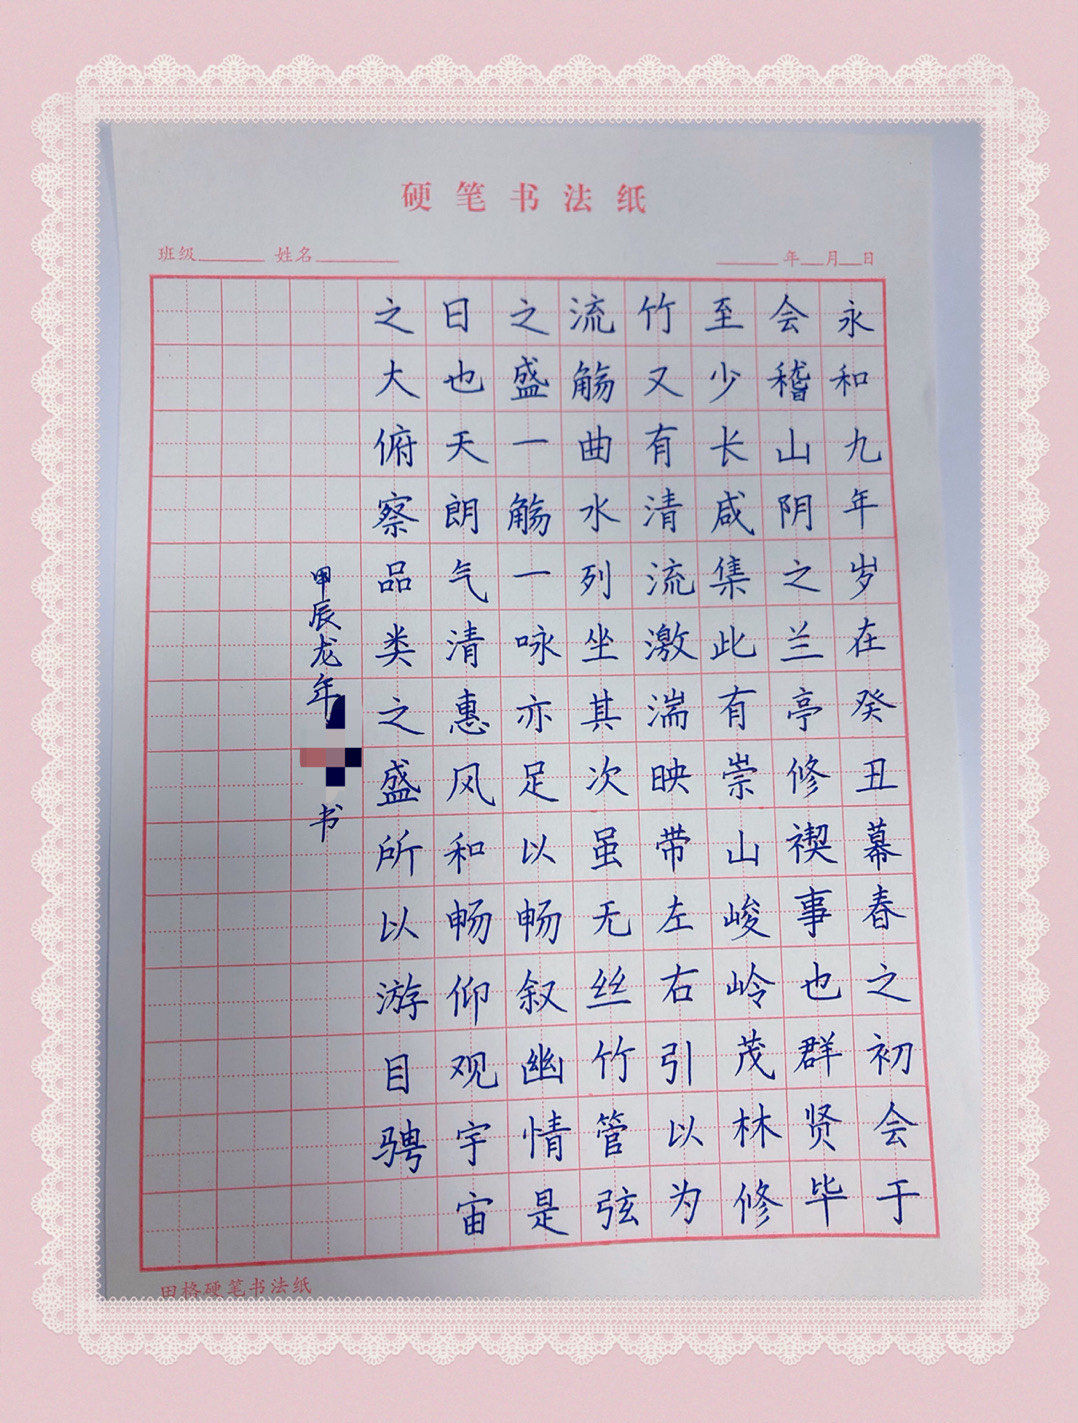 硬笔书法纸
班级 姓名 年 月 日
永和九年岁在癸丑暮春之初会于
会稽山阴之兰亭修禊事也群贤毕
至少长咸集此有崇山峻岭茂林修
竹又有清流激湍映带左右引以为
流觞曲水列坐其次虽无丝竹管弦
之盛一觞一咏亦足以畅叙幽情是
日也天朗气清惠风和畅仰观宇宙
之大俯察品类之盛所以游目骋
甲辰龙年 书
田格硬笔书法纸